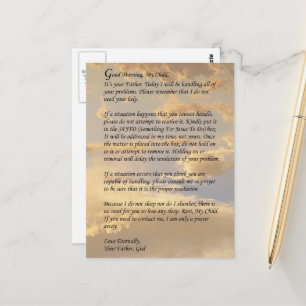 Good Morning, My Child,
It's your Father. Today I will be handling all of
your problems. Please remember that I do not
need your help.
If a situation happens that you cannot handle,
please do not attempt to resolve it. Kindly, put it
in the SFJTD (Something For Jesus To Do) box.
It will be addressed in my time, not yours. Once
the matter is placed into the box, do not hold on
to it or attempt to remove it. Holding on or
removal will delay the resolution of your problem.
If a situation occurs that you think you are
capable of handling, please consult me in prayer
to be sure that it is the proper resolution.
Because I do not sleep nor do I slumber, there is
no need for you to lose any sleep. Rest, My Child.
If you need to contact me, I am only a prayer
away.
Love Eternally,
Your Father, God